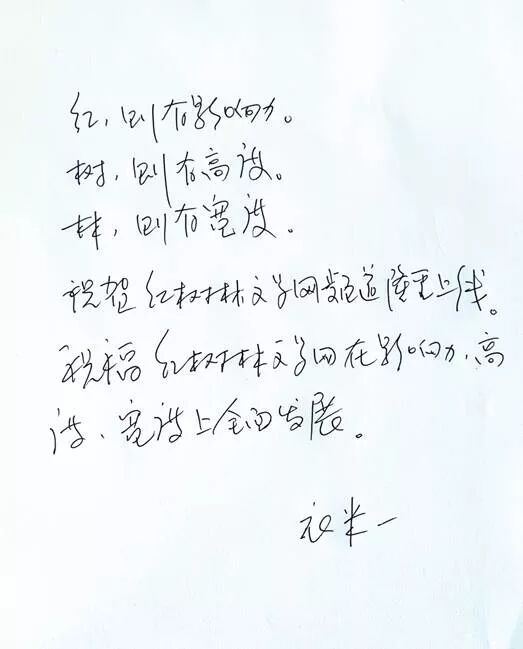 红，则有影响力。
树，则有高度。
林，则有宽度。
祝贺红树林文学网频道隆重上线。
祝福红树林文学网在影响力、高
度、宽度上全面发展。
衣米一